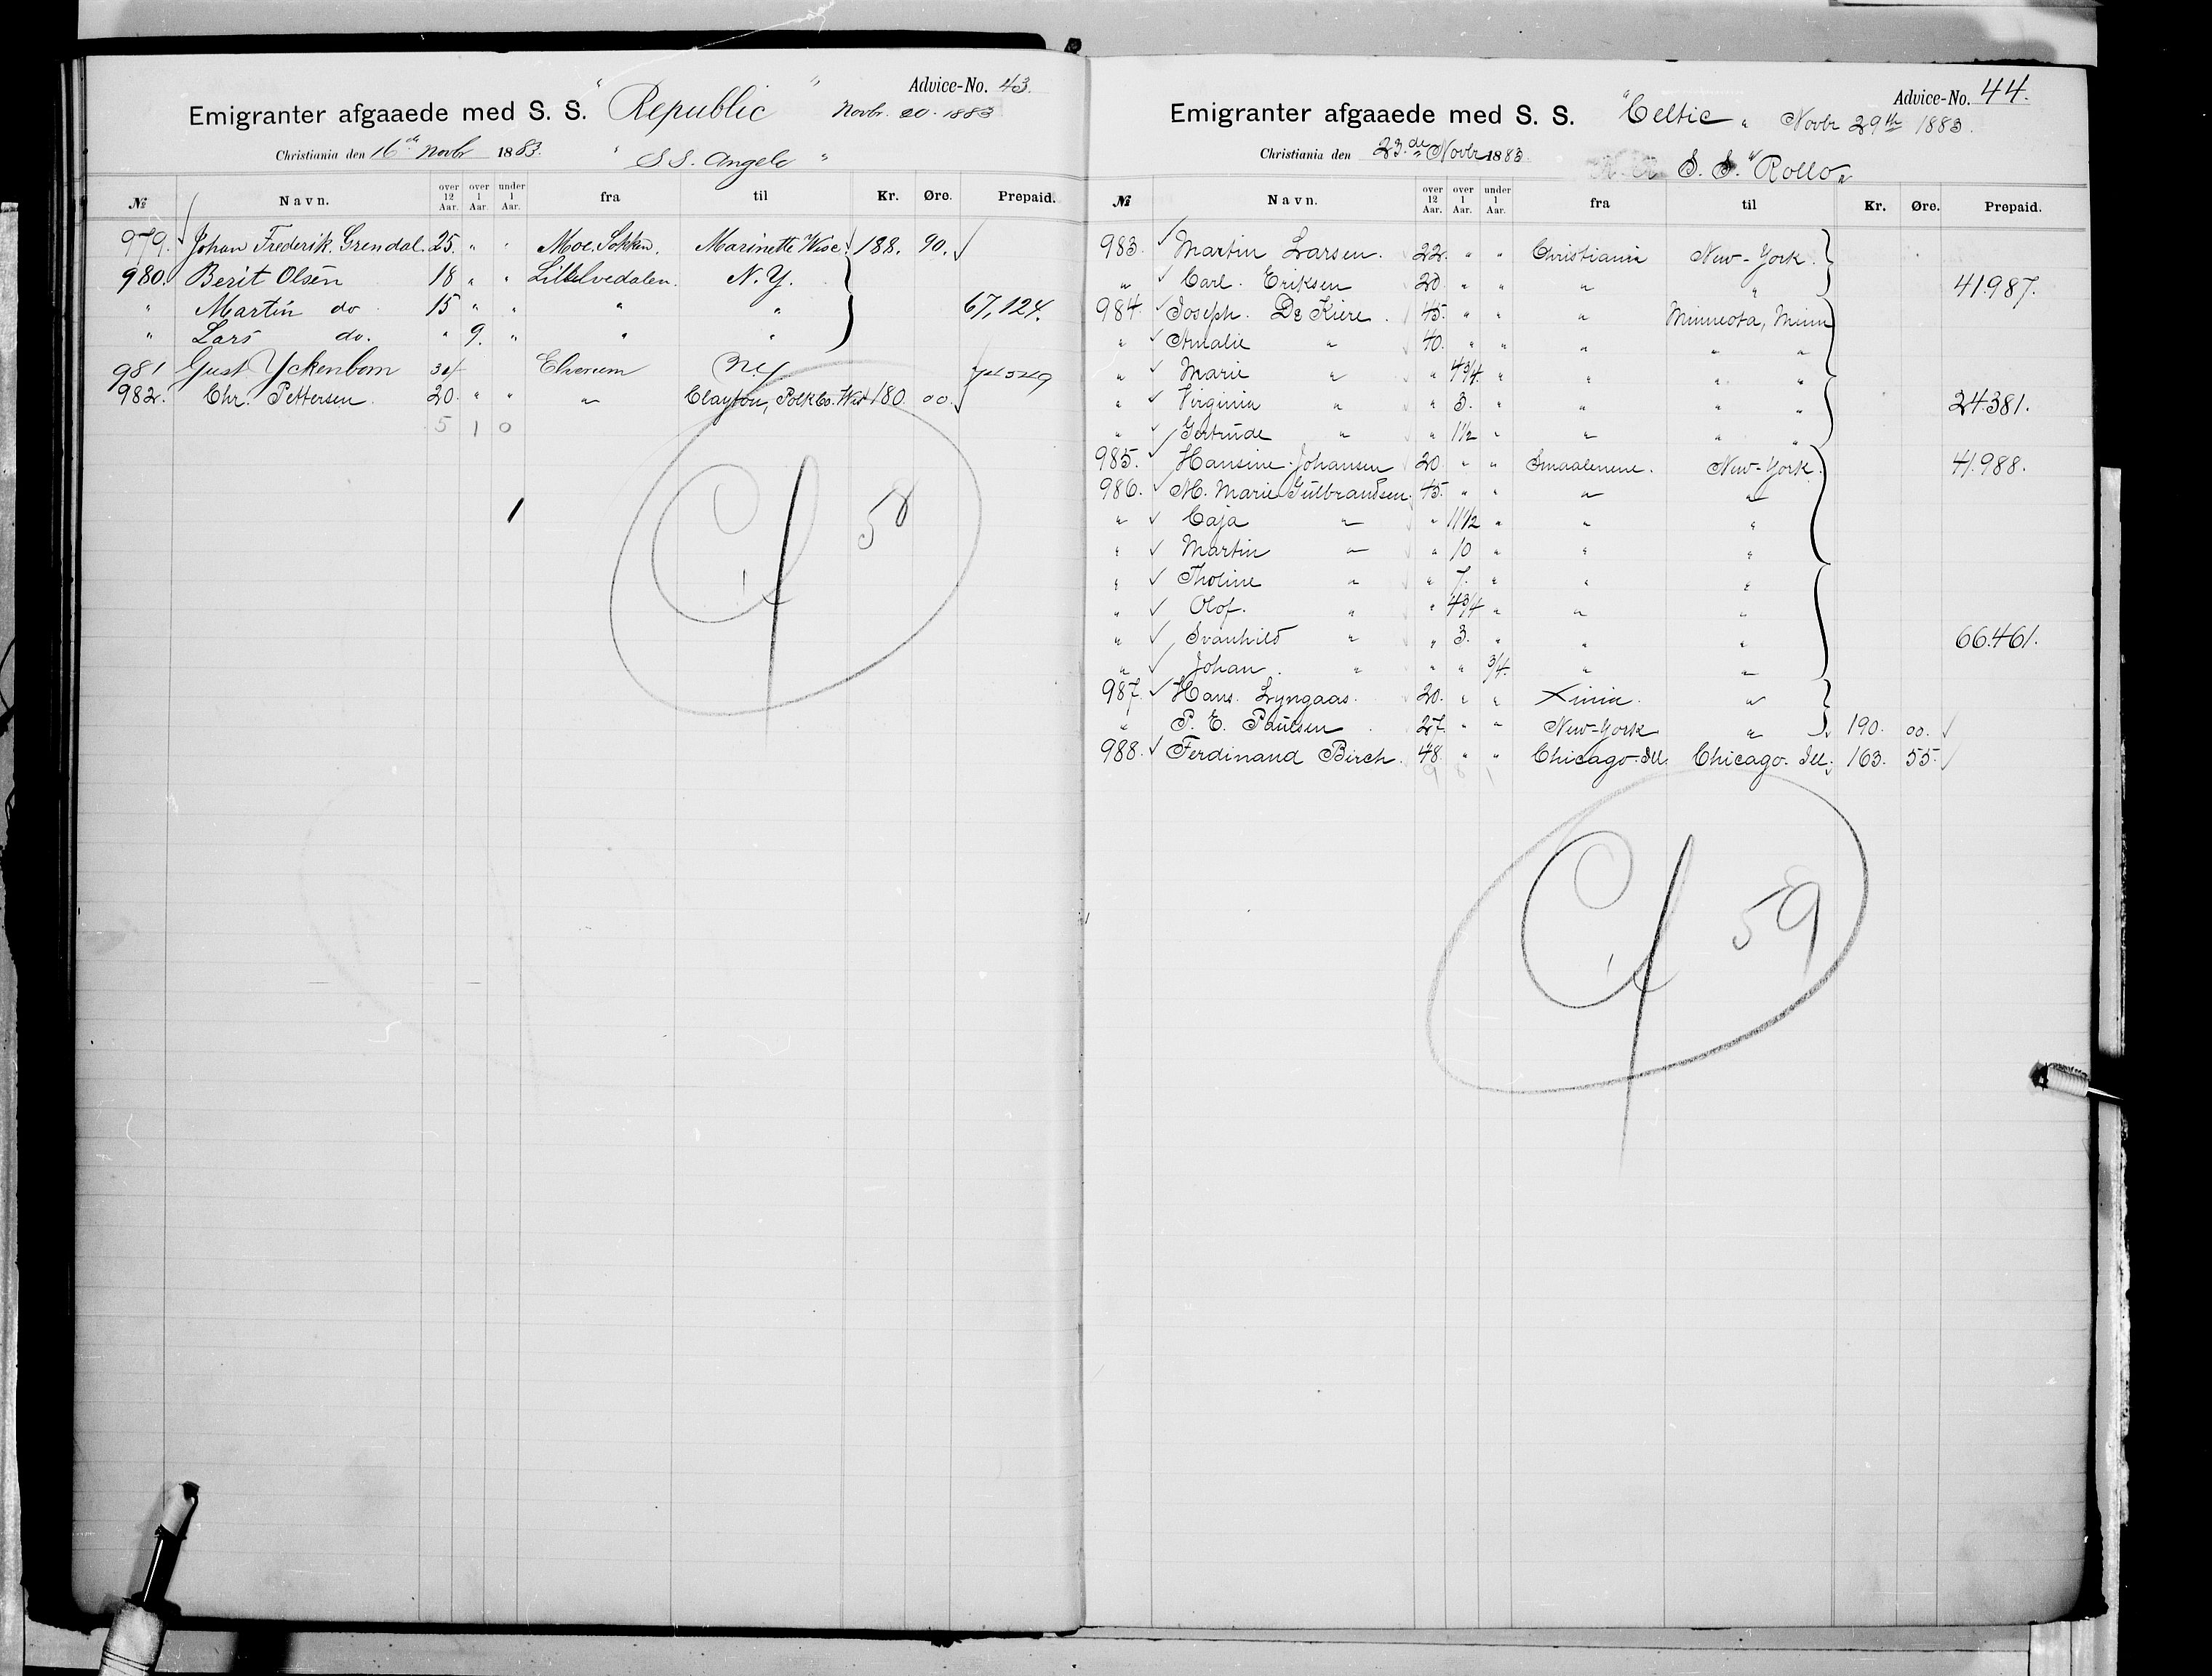 Advice-No. 43.
Emigranter afgaaede med S. S. "Republic" Novbr. 20. 1883
Christiania den 16de Novbr 1883. "S.S. Angelo"
№ Navn. over 12 Aar. over 1 Aar. under 1 Aar. fra til Kr. Øre. Prepaid.
979. Johan Frederik Grendal. 25. " " Moe. Sokken. Marinette Wisc. 188. 90.
980. Berit Olsen 18 " " Lilleelvedalen. N. Y.
" Martin do 15 " " " " 67,124.
" Lars do. " 9. " " "
981 Gust Yckenbom Elverum N.Y.
982. Chr. Pettersen. 20. " " " Clayton, Polk Co. Wis 180. 00.
5 1 0
1
58
Advice-No. 44.
Emigranter afgaaede med S. S. "Celtic" Novbr 29th 1883.
Christiania den 23.de Novbr 1883. S. S. "Rollo"
№ Navn. over 12 Aar. over 1 Aar. under 1 Aar. fra til Kr. Øre. Prepaid.
983. Martin Larsen. 22. " " Christiania New-York.
" Carl. Eriksen 20. " " " " 41987.
984. Joseph. De Kiere. 45. " " " Minneota, Minn
" Amalie " 40. " " " " "
" Marie " " 4 3/4. " " " "
" Virginia " " 3. " " " " 24381.
" Gertrude " " 1 1/2 " " " "
985. Hansine Johansen 20 " " Smaalenene. New-York. 41.988.
986. M. Marie Gulbrandsen. 45. " " " "
" Caja " " 11 1/2 " " "
" Martin " " 10 " " "
" Tholine " " 7. " " "
" Olof. " " 4 3/4 " " "
" Svanhild " " 3. " " " 66.461.
" Johan. " " " 3/4. " "
987. Hans. Lyngaas. 20. " " Xinia. "
" P. E. Paulsen 27. " " New-York " 190. 00.
988. Ferdinand Birch. 48. " " Chicago. Ill. Chicago. Ill. 163. 55.
9 8 1
59